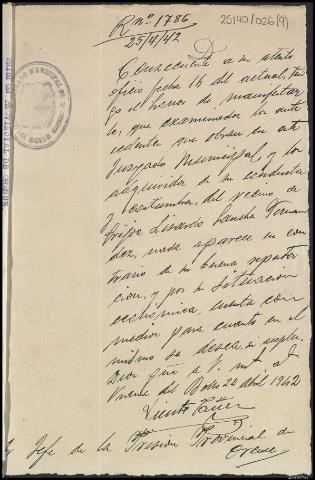 25140/026(9)
R nº 1786
25/4/42
Consecuente a su atento
oficio fecha 16 del actual, ten
go el honor de manifestar
le, que examinados los ante
cedentes que obran en este
Juzgado Municipal y los
adquiridos de su conducta
y costumbres del vecino de
Grijoa Lisardo Sancha Fernan
dez, nada aparece en con
trario de su buena reputa
cion, y por su situacion
economica, cuenta con
medios para cuanto en el
mismo se desea,
Dios gue a V. m a s
Viana del Bollo 22 abril 1942
Jefe de la Prision Provincial de
Orense